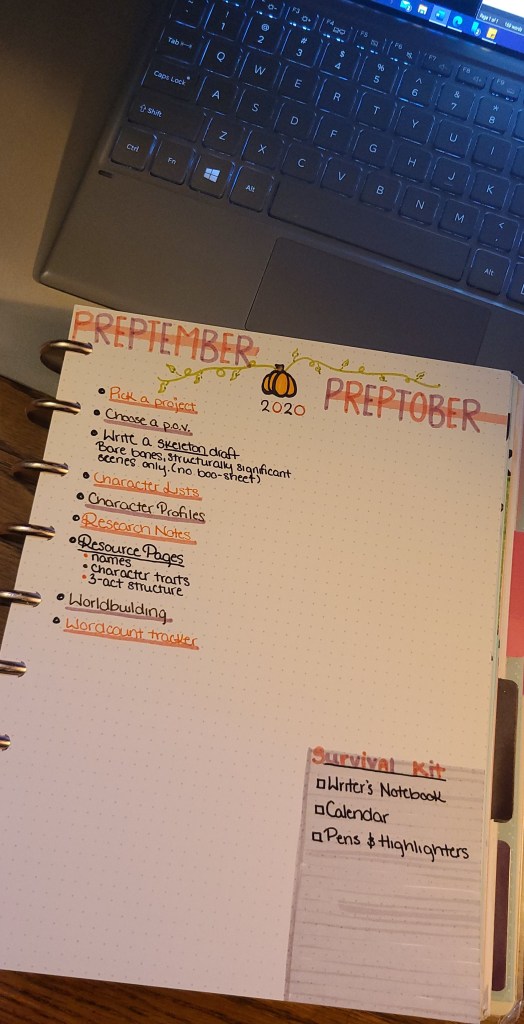 Page 1 of 1
F3 F4 F5 F6 F7 F8 F9
! @ # $ % ^ & *
1 2 3 4 5 6 7 8
Tab Q W E R T Y U I
Caps Lock A S D F G H J K
Shift Z X C V B N M <
Ctrl Fn Alt Alt
PREPTEMBER
2020
PREPTOBER
• Pick a project
• Choose a p.o.v.
• Write a skeleton draft
Bare bones, structurally significant
scenes only. (no boo-sheet)
• Character Lists
• Character Profiles
• Research Notes
• Resource Pages
• names
• character traits
• 3-act structure
• Worldbuilding
• Wordcount tracker
Survival Kit
□ Writer's Notebook
□ Calendar
□ Pens & Highlighters